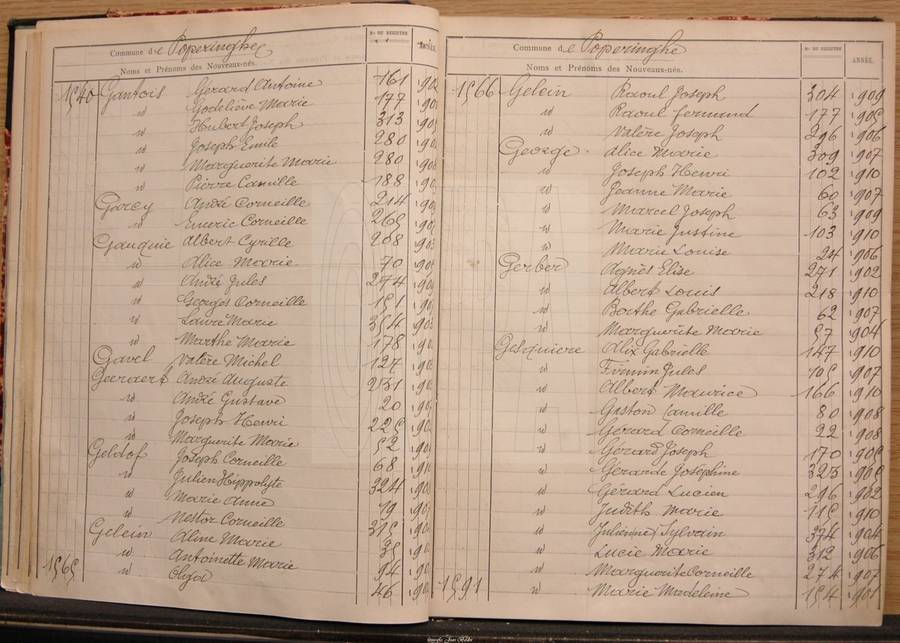 Commune de Poperinghe
No DU REGISTRE
Noms et Prénoms des Nouveaux-nés.
1540 Gantois Gérard Antoine 161
id Godeliève Marie 177
id Hubert Joseph 313
id Joseph Emile 280
id Marguerite Marie 280
id Pierre Camille 188
Garcy André Corneille 214
id Emeric Corneille 265
Gauquie Albert Cyrille 208
id Alice Marie 70
id André Jules 274
id Georges Corneille 151
id Laure Marie 354
id Marthe Marie 178
Gavel Valère Michel 127
Geeraert André Auguste 231
id André Gustave 20
id Joseph Henri 225
id Marguerite Marie 52
Geldof Joseph Corneille 68
id Julien Hippolyte 324
id Marie Anne 19
id Nestor Corneille 315
Gelein Aline Marie 35
id Antoinette Marie 94
1565 id 46
Commune de Poperinghe
No DU REGISTRE
ANNÉE.
Noms et Prénoms des Nouveaux-nés.
1566 Gelein Raoul Joseph 304 1909
id Raoul Fernand 177 1905
id Valère Joseph 296 1906
George Alice Marie 309 1907
id Joseph Henri 102 1910
id Jeanne Marie 60 1907
id Marcel Joseph 63 1909
id Marie Justine 103 1910
id Marie Louise 24 1906
Gerber Agnès Elise 271 1902
id Albert Louis 218 1910
id Berthe Gabrielle 62 1907
id Marguerite Marie 57 1904
Gesquiere Alix Gabrielle 147 1910
id Firmin Jules 105 1907
id Albert Maurice 166 1910
id Gaston Camille 80 1908
id Gérard Corneille 22 1908
id Gérard Joseph 170
id Gérarde Joséphine 323
id Gérard Lucien 296 1902
id Judith Marie 115 1910
id Julien Sylvain 374 1904
id Lucie Marie 312 1906
id Marguerite Corneille 274 1907
1591 id Marie Madeleine 154 1901